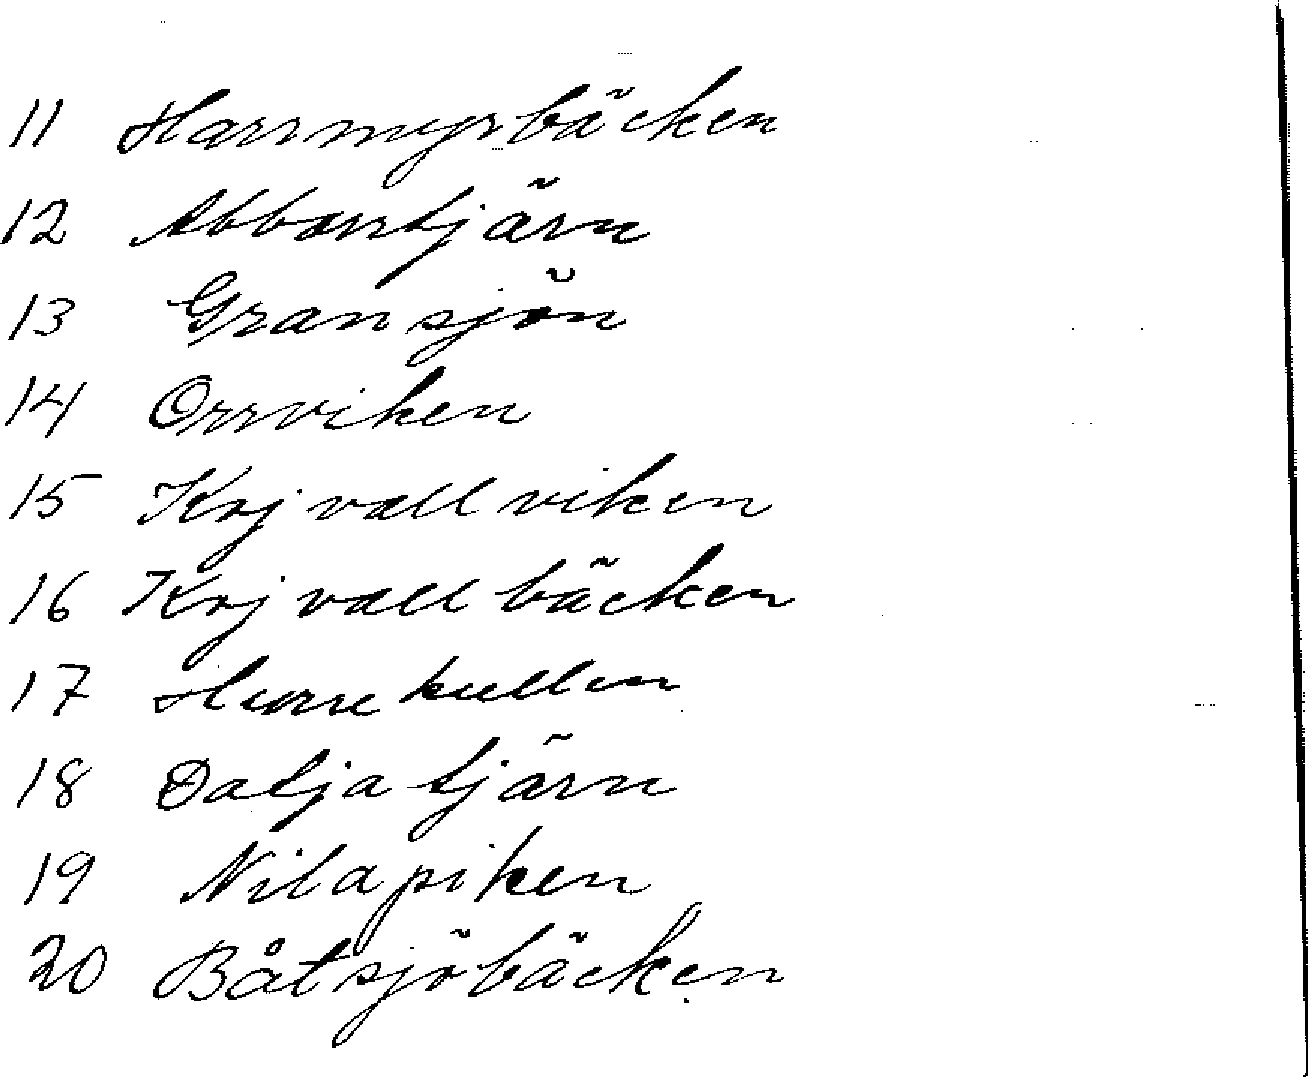 11 Harrmyrbäcken
12 Abborrtjärn
13 Gransjön
14 Orrviken
15 Krj vall viken
16 Krj vall bäcken
17 kullen
18 Datja tjärn
19 Nilapiken
20 Båtsjöbäcken